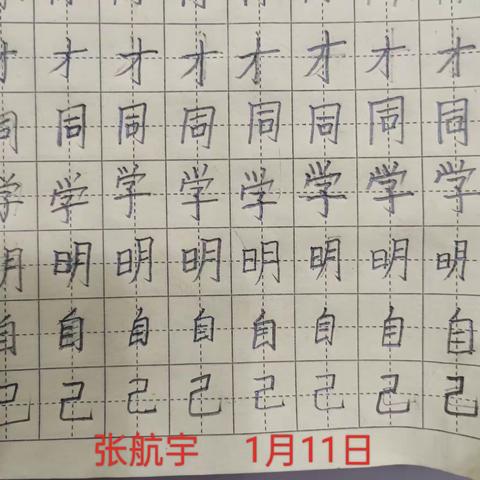 才才才才才才才才
同同同同同同同同
学学学学学学学学
明明明明明明明明
自自自自自自自自
己己己己己己己己
张航宇 1月11日